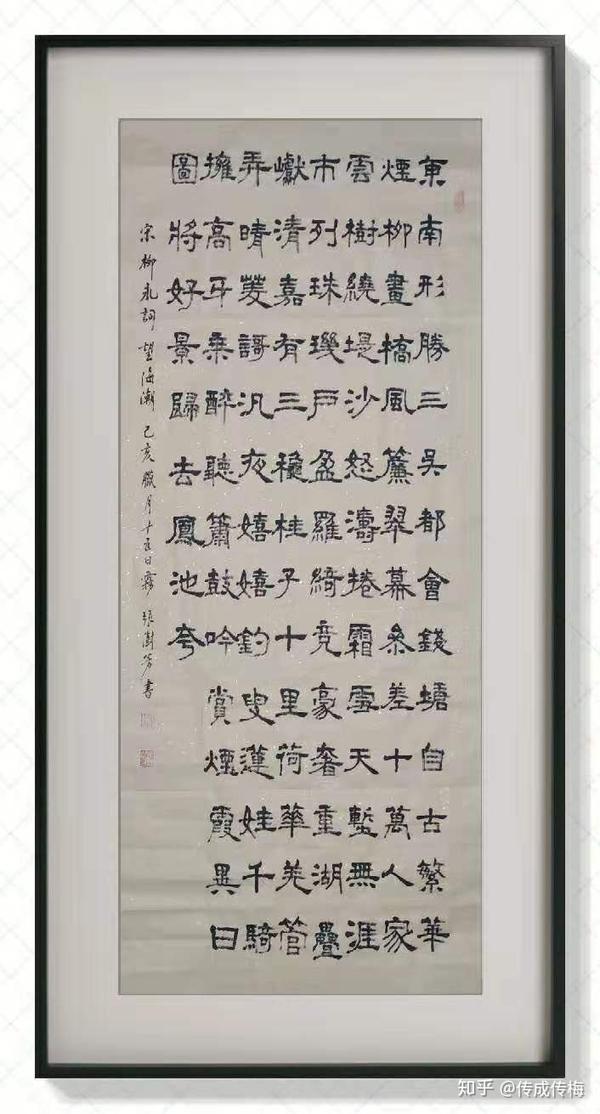 東南形勝三吳都會錢塘自古繁華
煙柳畫橋風簾翠幕參差十萬人家
雲樹繞堤沙怒濤捲霜雪天塹無涯
市列珠璣戶盈羅綺競豪奢重湖疊
巘清嘉有三穐桂子十里荷華羌管
弄晴菱謌汎夜嬉嬉釣叟蓮娃千騎
擁高牙乘醉聽簫鼓吟賞煙霞異日
圖將好景歸去鳳池夸
宋柳永詞 望海潮 己亥臘月十五日 張樹芳書
知乎 @传成传梅